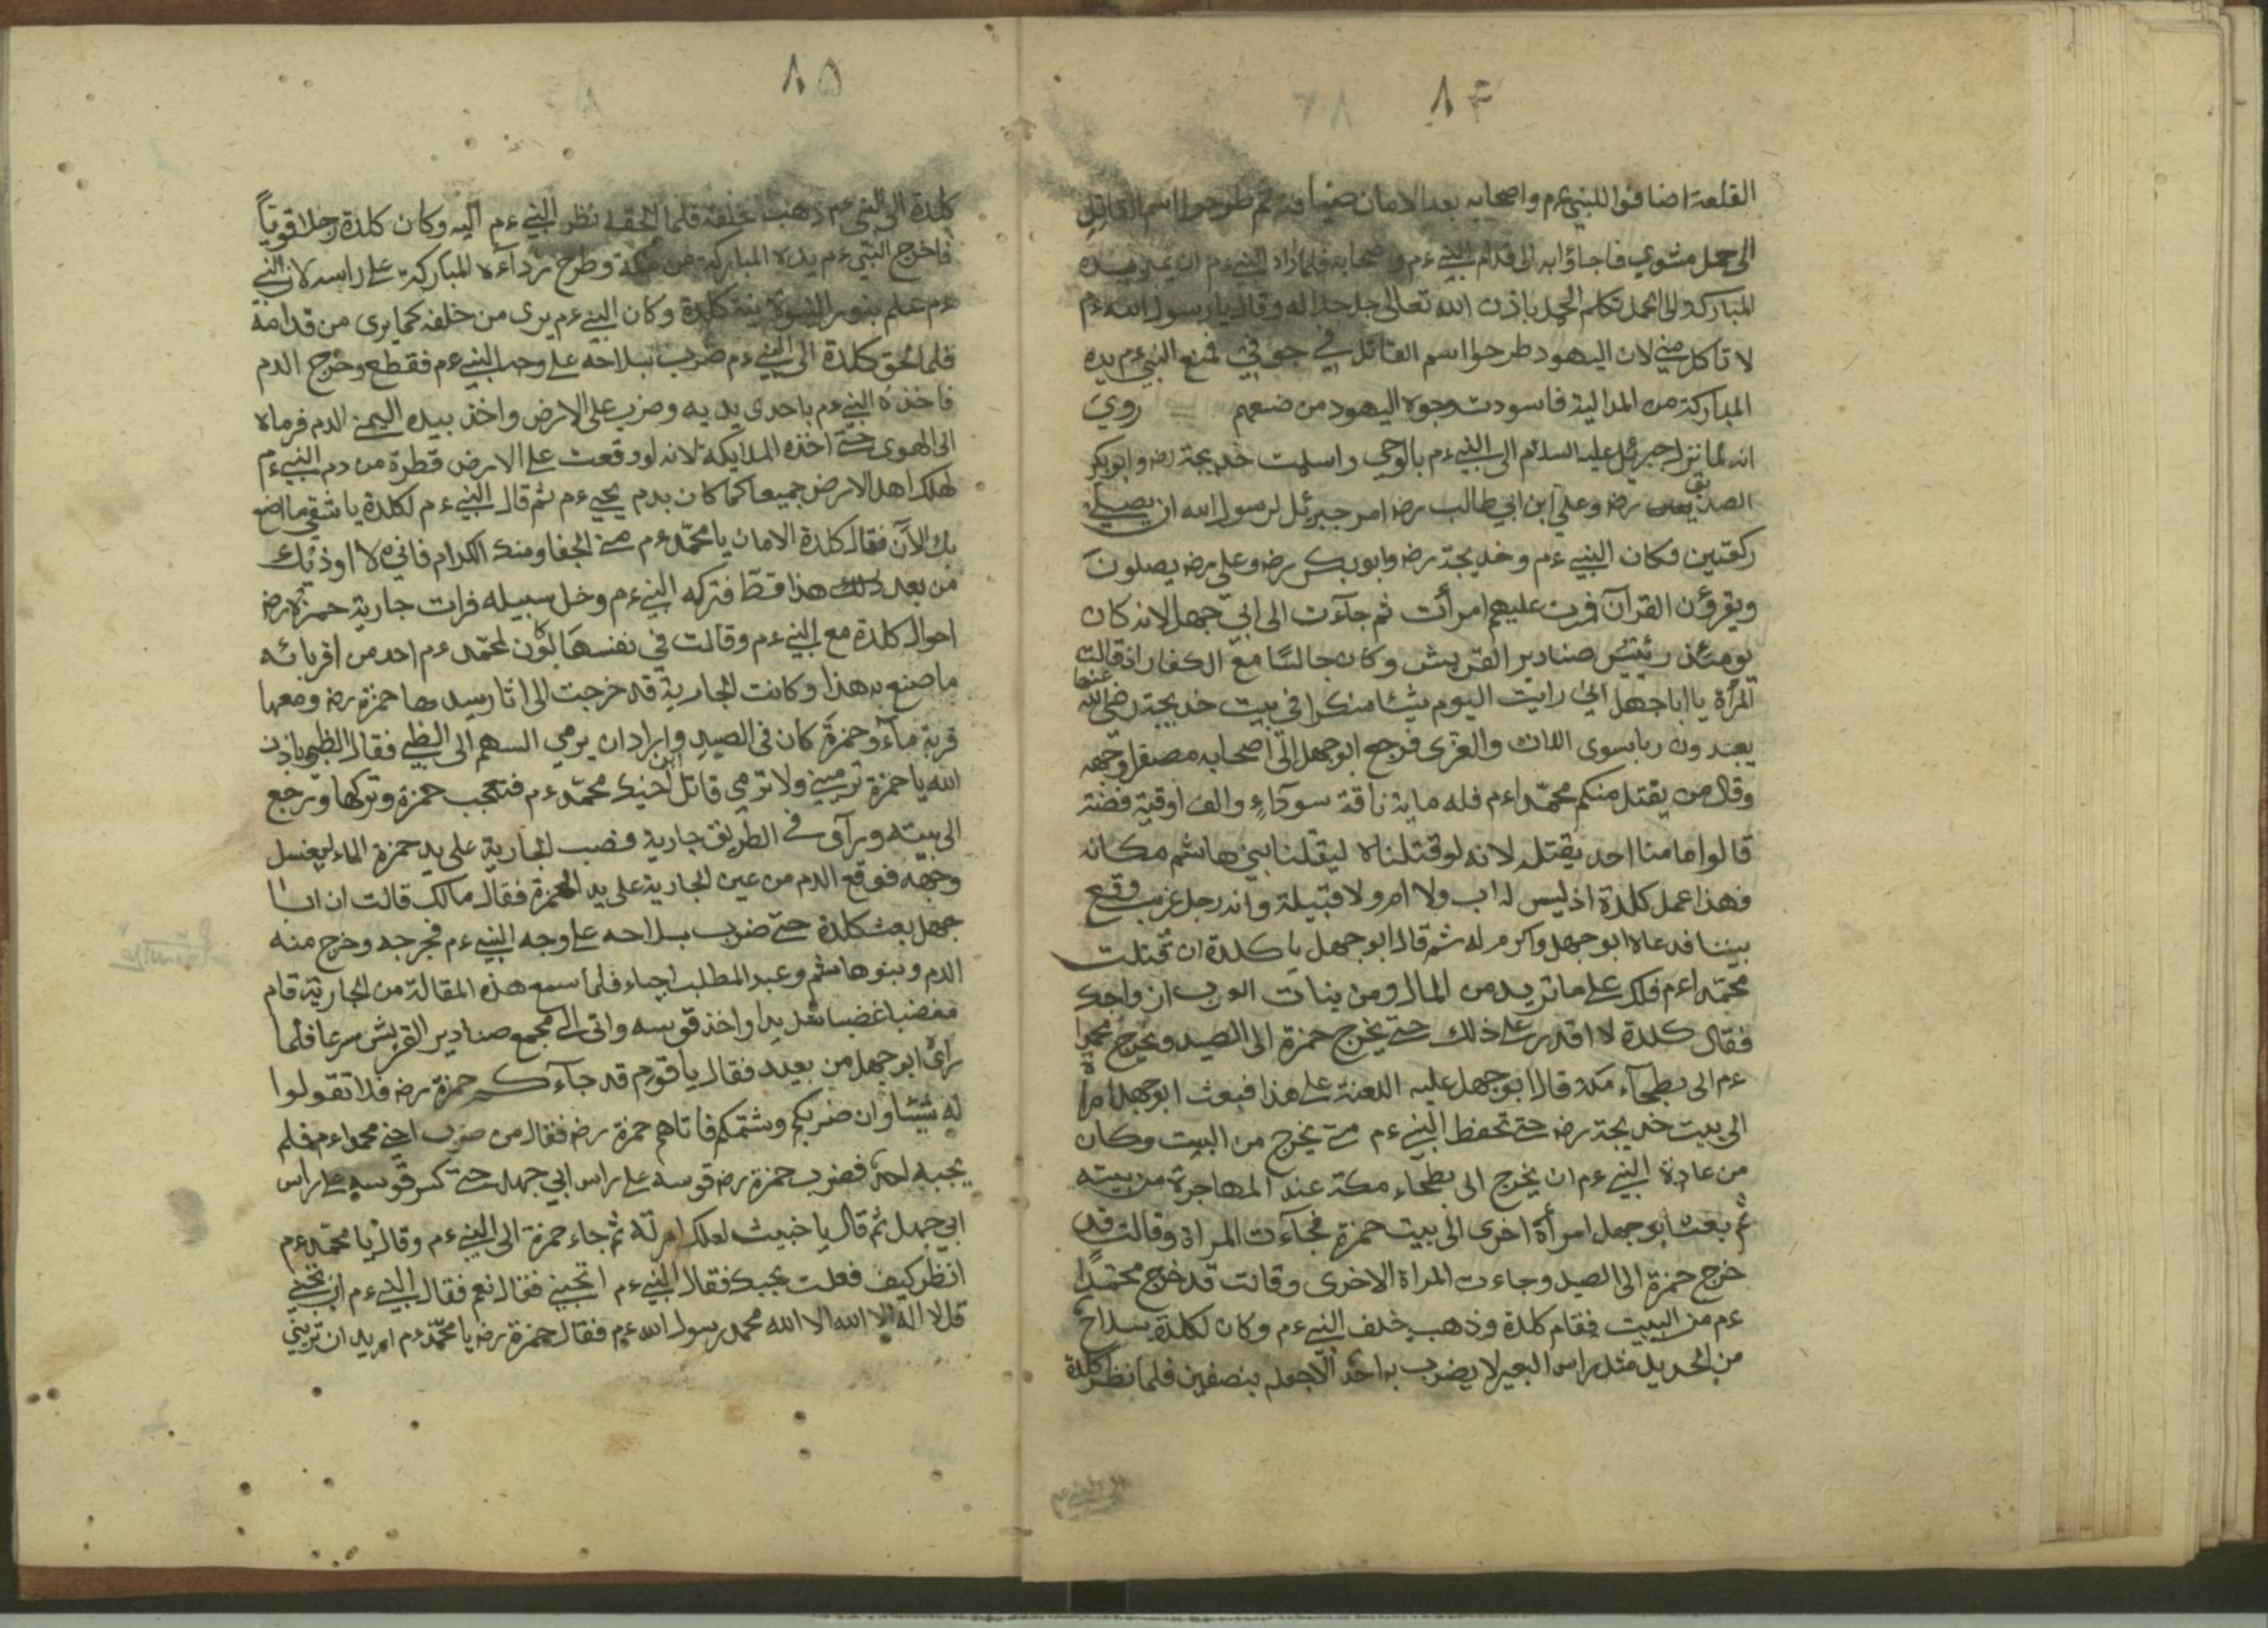 ٨٤
القلعة اضافوا للنبي ءم واصحابه بعد الامان ضيافة ثم طرحوا اسم القاتل
الى حمل مشوي فجاؤا به الى قدام النبي ءم واصحابه فلما اراد النبي ءم ان يمد يده
المباركة الى الحمل تكلم الحمل باذن الله تعالى جل جلاله وقال يا رسول الله ءم
لا تاكل مني لان اليهود طرحوا اسم القاتل في جوفي فمنع النبي ءم يده
المباركة من المدالية فاسودت وجوه اليهود من صنعهم روي
انه لما نزل جبرئيل عليه السلام الى النبي ءم بالوحي واسلمت خديجة رض وابو بكر
الصديق رض وعلي ابن ابي طالب رض امر جبرئل لرسول الله ان يصلي
ركعتين فكان النبي ءم وخديجة رض وابو بكر رض وعلي رض يصلون
ويقرؤن القرآن فمرت عليهم امرأت ثم جآءت الى ابي جهل لانه كان
يومئذ رئيس صنادير القريش وكان جالسا مع الكفار اذ قالت
المرأة يا ابا جهل اني رايت اليوم شيئا منكرا في بيت خديجة رضي الله عنها
يعبدون ربا سوى اللات والعزى فرجع ابو جهل الى اصحابه مصفرا وجهه
وقال من يقتل منكم محمدا ءم فله ماية ناقة سودآء والف اوقية فضة
قالوا ما منا احد يقتله لانه لو قتلناه ليقتلنا بني هاشم مكانه
فهذا عمل كلدة اذ ليس له اب ولا ام ولا قبيلة وانه رجل غريب وقع
بيننا فدعاه ابو جهل واكرم له ثم قال ابو جهل يا كلدة ان قتلت
محمدا ءم فلك على ما تريد من المال ومن بنات العرب ازواجك
فقال كلدة لا اقدر على ذلك حتى يخرج حمزة الى الصيد ويخرج محمدا
ءم الى بطحآء مكة قال ابو جهل عليه اللعنة على هذا فبعث ابو جهل امراة
الى بيت خديجة رض حتى تحفظ النبي ءم متى يخرج من البيت وكان
من عادة النبي ءم ان يخرج الى بطحاء مكة عند المهاجرة من بيته
ثم بعث ابو جهل امرأة اخرى الى بيت حمزة فجآءت المراة وقالت قد
خرج حمزة الى الصيد وجاءت المراة الاخرى وقالت قد خرج محمدًا
ءم من البيت فقام كلدة وذهب خلف النبي ءم وكان لكلدة سلاح
من الحديد مثل راس البعير لا يضرب به احد الا جعله بنصفين فلما نظر كلدة
٨٥
كلدة الى النبي ءم ذهب خلفه فلما الحقه نظر النبي ءم اليه وكان كلدة رجلا قويّاً
فاخرج النبي ءم يده المباركة من كمه وطرح ردآءه المباركة على راسه لان النبي
ءم علم بنور النبوة نية كلدة وكان النبي ءم يرى من خلفه كما يرى من قدامه
فلما الحق كلدة الى النبي ءم ضرب بسلاحه على وجه النبي ءم فقطع وخرج الدم
فاخذه النبي ءم باحدى يديه وضرب على الارض واخذ بيده اليمنى الدم فرماه
الى الهوى حتى اخذه الملايكة لانه لو وقعت على الارض قطرة من دم النبي ءم
لهلك اهل الارض جميعا كما كان بدم يحيى ءم ثم قال النبي ءم لكلدة يا شقي ما اصنع
بك الآن فقال كلدة الامان يا محمد ءم مني الجفا ومنك الكرام فاني لا اوذيك
من بعد ذلك هذا قط فتركه النبي ءم وخل سبيله فرات جارية حمزة رض
احوال كلدة مع النبي ءم وقالت في نفسها لو كان لمحمد ءم احد من اقربائه
ما صنع به هذا وكانت الجارية قد خرجت الى اثار سيدها حمزة رض ومعها
قربة مآء وحمزة كان في الصيد واراد ان يرمي السهم الى الظبي فقال الظبي باذن
الله يا حمزة ترميني ولا ترمي قاتل ابن اخيك محمد ءم فتعجب حمزة وتركها ورجع
الى بيته ورآى في الطريق جارية فصب الجارية على يد حمزة الماء ليغسل
وجهه فوقع الدم من عين الجارية على يد الحمزة فقال مالك قالت ان ابا
جهل بعث كلدة حتى ضرب بسلاحه على وجه النبي ءم فجرحه وخرج منه
الدم وبنو هاشم وعبد المطلب احياء فلما سمع هذه المقالة من الجارية قام
مغضبا غضبا شديدا واخذ قوسه واتى الى مجمع صنادير القريش سرعا فلما
راى ابو جهل من بعيد فقال يا قوم قد جآءكم حمزة رض فلا تقولوا
له شيئا وان ضربكم وشتمكم فاتاهم حمزة رض فقال من ضرب اخي محمدا ءم فلم
يجبه احد فضرب حمزة رض قوسه على راس ابي جهل حتى كسر قوسه على راس
ابي جهل ثم قال يا خبيث لعلك امرته ثم جاء حمزة الى النبي ءم وقال يا محمد ءم
انظر كيف فعلت بحبك فقال النبي ءم اتحبني فقال نعم فقال النبي ءم ان تحبني
قل لا اله الا الله محمد رسول الله ءم فقال حمزة رض يا محمد ءم اريد ان تريني